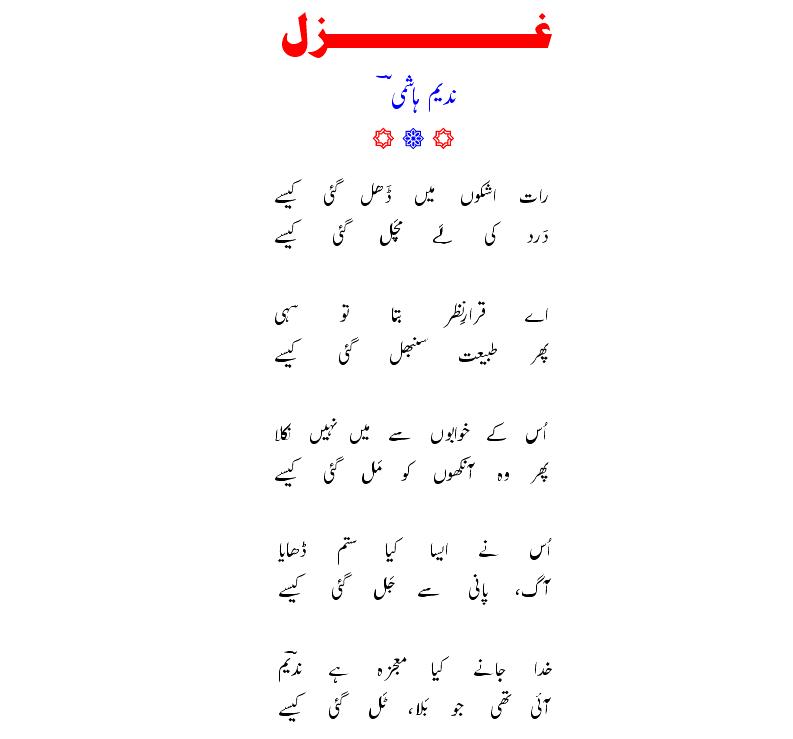 غــــــزل
ندیم ہاشمی
رات اشکوں میں ڈَھل گئی کیسے
دَرد کی لَے مچَل گئی کیسے
اے قرارِنظر بتا تو سہی
پھر طبیعت سنبھل گئی کیسے
اُس کے خوابوں سے میں نہیں نکلا
پھر وہ آنکھوں کو مَل گئی کیسے
اُس نے ایسا کیا ستم ڈھایا
آگ، پانی سے جَل گئی کیسے
خدا جانے کیا معجزہ ہے ندیمؔ
آئی تھی جو بَلا، ٹَل گئی کیسے